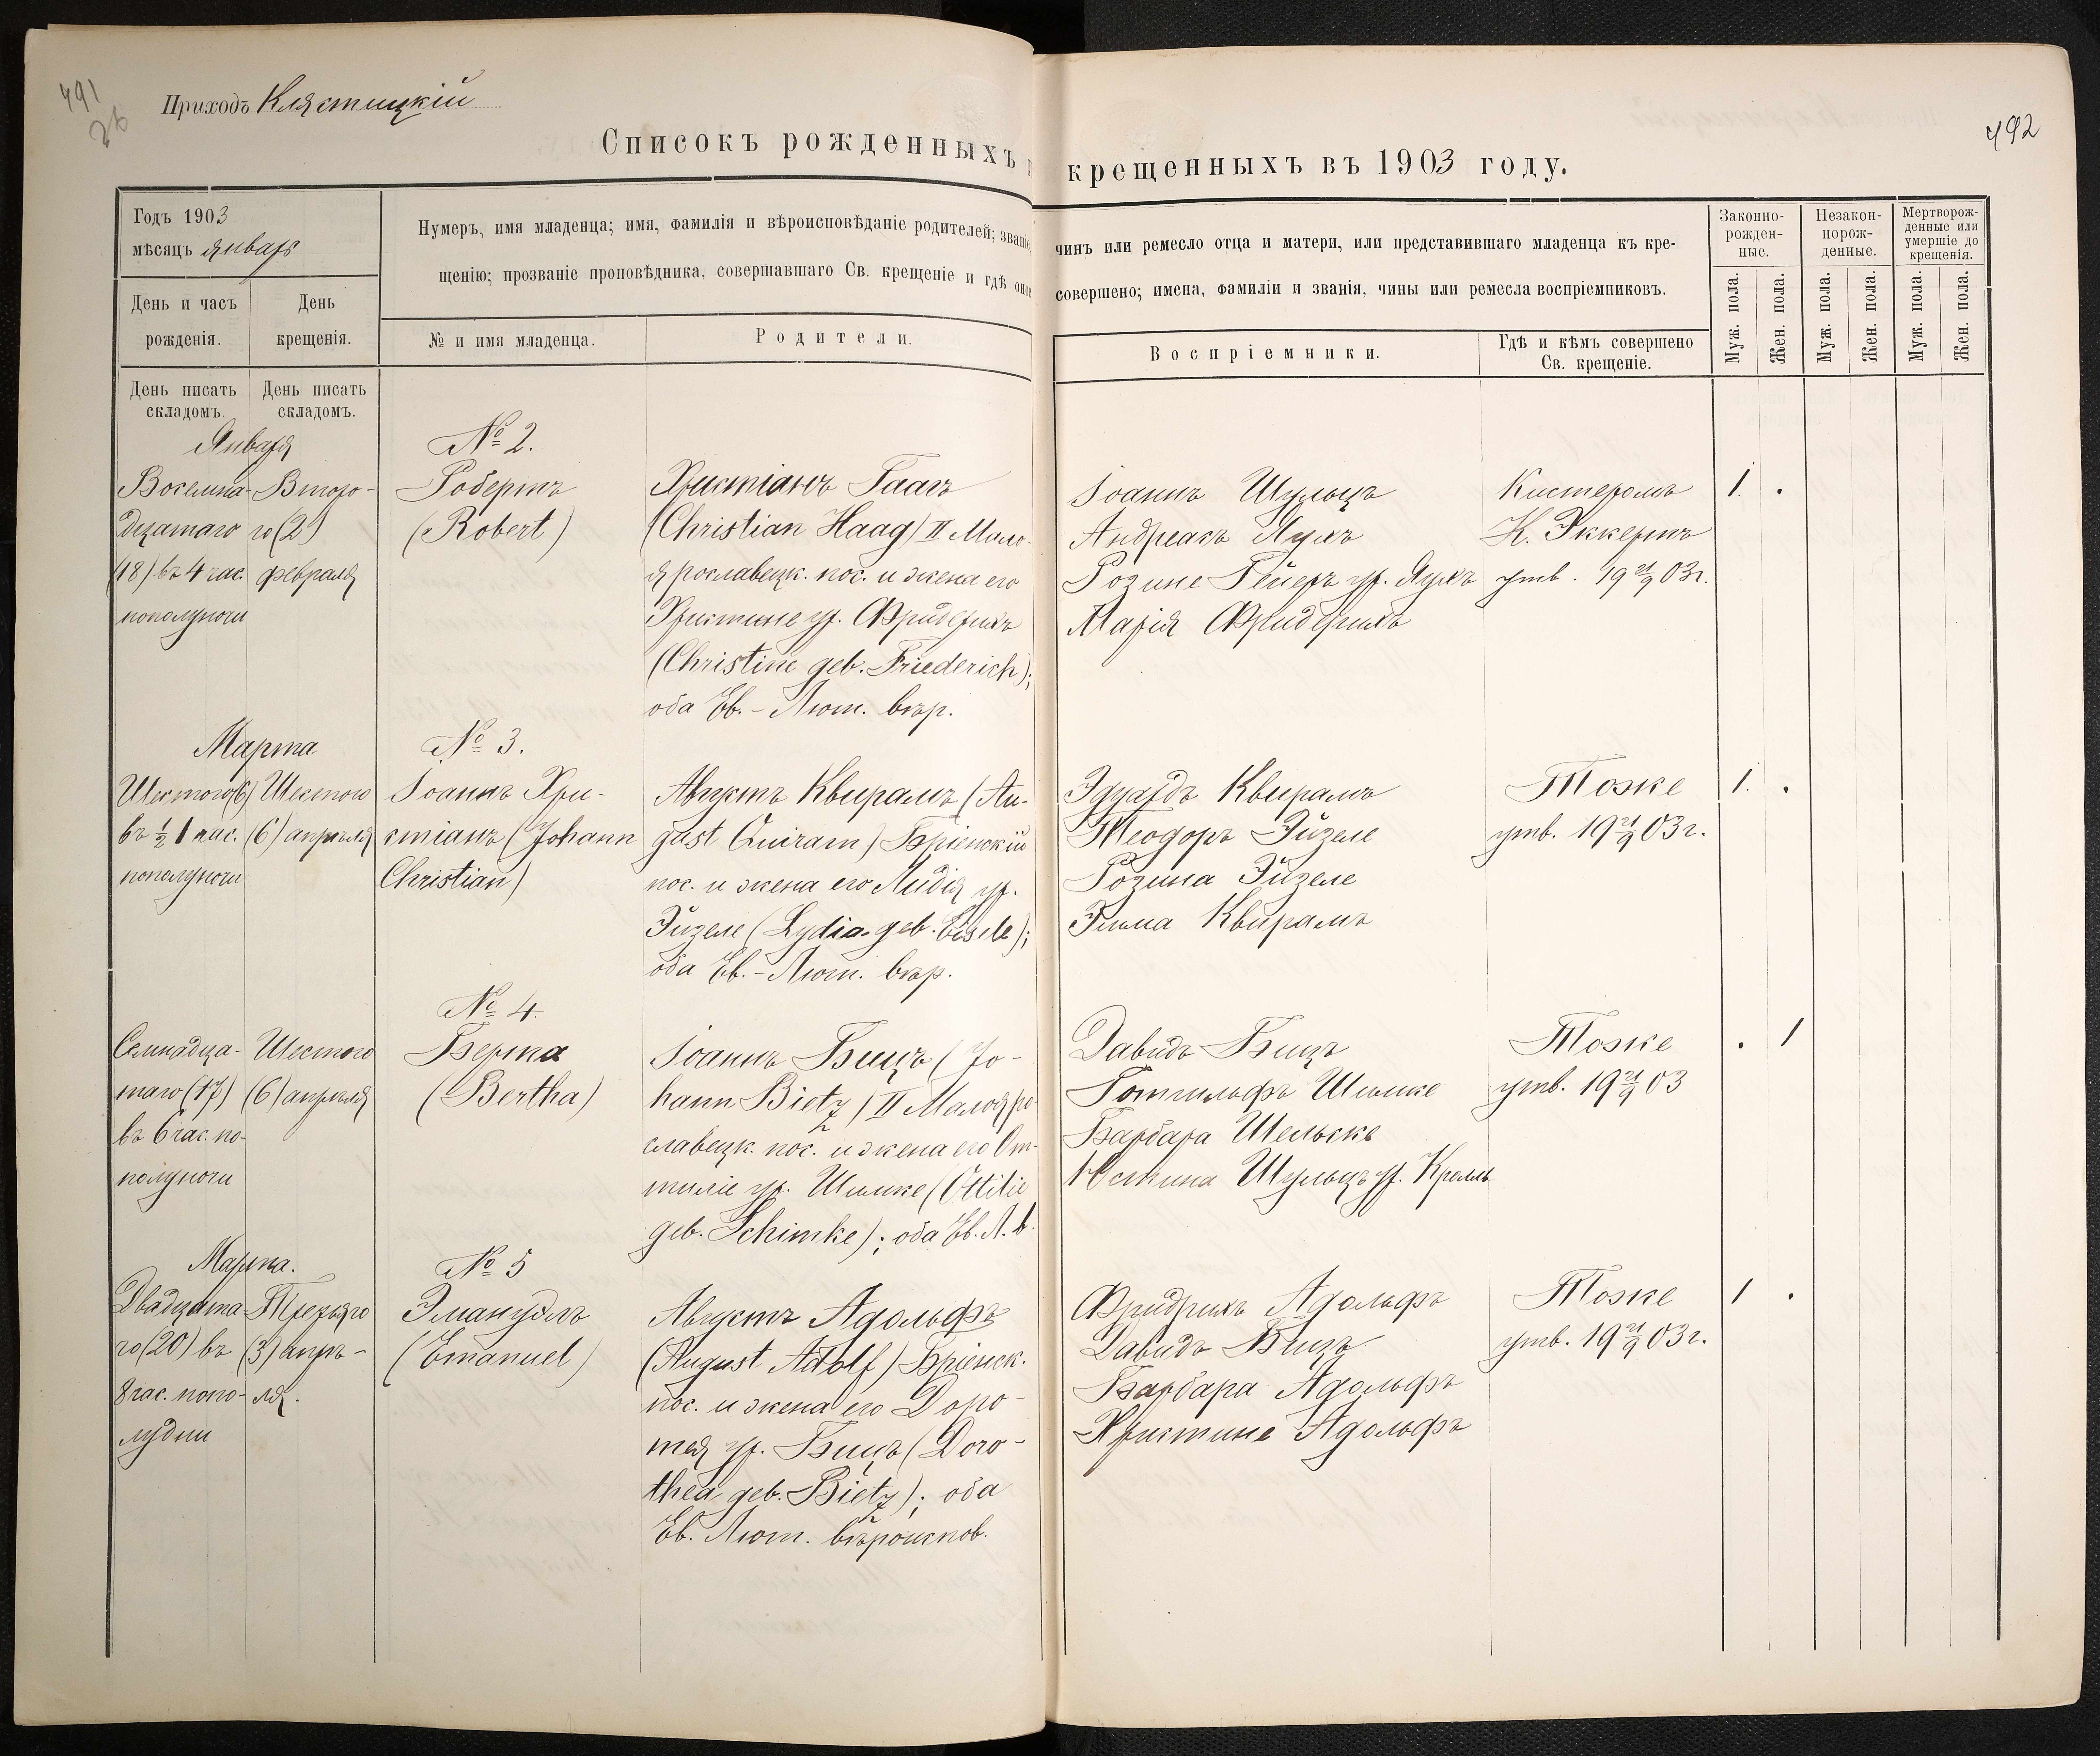 491
26
492
Приходъ Клястицкій
Списокъ рожденныхъ и крещенныхъ въ 1903 году.
Годъ 1903
мѣсяцъ январь
Нумеръ, имя младенца; имя, фамилія и вѣроисповѣданіе родителей; званіе, чинъ или ремесло отца и матери, или представившаго младенца къ кре-
щенію; прозваніе проповѣдника, совершавшаго Св. крещеніе и гдѣ оное совершено; имена, фамиліи и званія, чины или ремесла воспріемниковъ.
Законно-
рожден-
ные.
Незакон-
норож-
денные.
Мертворож-
денные или
умершіе до
крещенія.
День и часъ
рожденія.
День
крещенія.
№ и имя младенца.
Родители.
Воспріемники.
Гдѣ и кѣмъ совершено
Св. крещеніе.
Муж. пола.
Жен. пола.
Муж. пола.
Жен. пола.
Муж. пола.
Жен. пола.
День писать
складомъ.
День писать
складомъ.
Января
Восемна-
дцатаго
(18) въ 4 час.
пополуночи
Второ-
го (2)
февраля
№ 2.
Робертъ
(Robert)
Христіанъ Гаагъ
(Christian Haag) II Мало-
ярославецк. пос. и жена его
Христине ур. Фридерихъ
(Christine geb. Friederich);
оба Ев.-Лют. вѣр.
Іоаннъ Шульцъ
Андреасъ
Розине Гейеръ ур.
Марія Фридерихъ
Кистеромъ
К. Эккертъ
утв. 19 21/9 03г.
1 .
Марта
Шестого (6)
въ ½ 1 час.
пополуночи
Шестого
(6) апрѣля
№ 3.
Іоаннъ Хри-
стіанъ (Johann
Christian)
Августъ Квирамъ (Au-
gust Quiram) Бріенскій
пос. и жена его Лидія ур.
Эйзеле (Lydia geb. Eisele);
оба Ев.-Лют. вѣр.
Эдуардъ Квирамъ
Теодоръ Эйзеле
Розина Эйзеле
Эмма Квирамъ
Тоже
утв. 19 21/9 03г.
1. .
Семнадца-
таго (17)
въ 6 час. по-
полуночи
Шестого
(6) апрѣля
№ 4.
Берта
(Bertha)
Іоаннъ Бицъ (Jo-
hann Bietz) II Малояро-
славецк. пос. и жена его От-
тиліе ур. Шимке (Ottilie
geb. Schimke); оба Ев. Л. в.
Давидъ Бицъ
Готтильфъ Шимке
Барбара Шельске
Юстина Шульцъ ур. Кролль
Тоже
утв. 19 21/9 03
. 1
Марта.
Двадцата-
го (20) въ
8 час. попо-
лудни
Третьяго
(3) апрѣ-
ля.
№ 5
Эмануэль
(Emanuel)
Августъ Адольфъ
(August Adolf) Бріенск.
пос. и жена его Доро-
тея ур. Бицъ (Doro-
thea geb. Bietz); оба
Ев. Лют. вѣроиспов.
Фридрихъ Адольфъ
Давидъ Бицъ
Барбара Адольфъ
Христине Адольфъ
Тоже
утв. 19 21/9 03г.
1 .